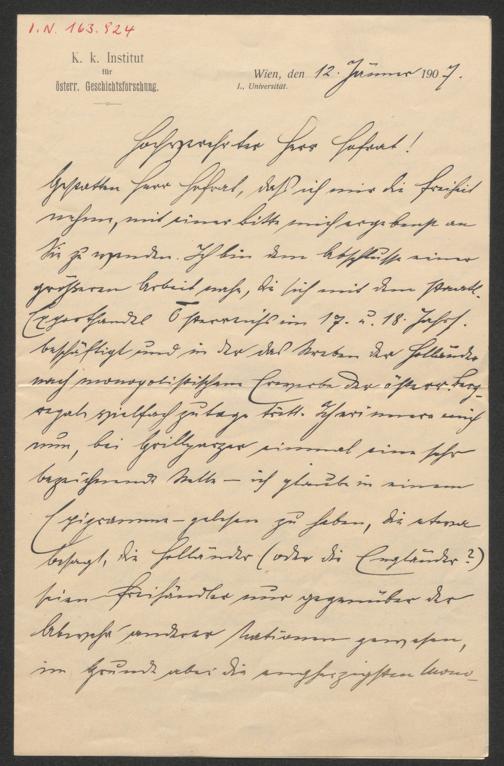 I.N. 163.824
K. k. Institut
für
österr. Geschichtsforschung.
Wien, den 12. Jänner 1907.
I., Universität.
Hochverehrter Herr Hofrat!
Gestatten Herr Hofrat, daß ich mir die Freiheit
nehme, mit einer Bitte mich ergebenst an
Sie zu wenden. Ich bin dem Abschlusse einer
größeren Arbeit nahe, die sich mit dem staatl.
Exporthandel Österreichs im 17. u. 18. Jahrh.
beschäftigt und in der das Streben der Holländer
nach monopolistischem Erwerbe der österr. Berg-
regals vielfach zutage tritt. Ich erinnere mich
nun, bei Grillparzer einmal eine sehr
bezeichnende Stelle – ich glaube in einem
Epigramme – gelesen zu haben, die etwa
besagt, die Holländer (oder die Engländer?)
seien Freihändler nur gegenüber der
Abwehr anderer Nationen gewesen,
im Grunde aber die engherzigsten Mono-